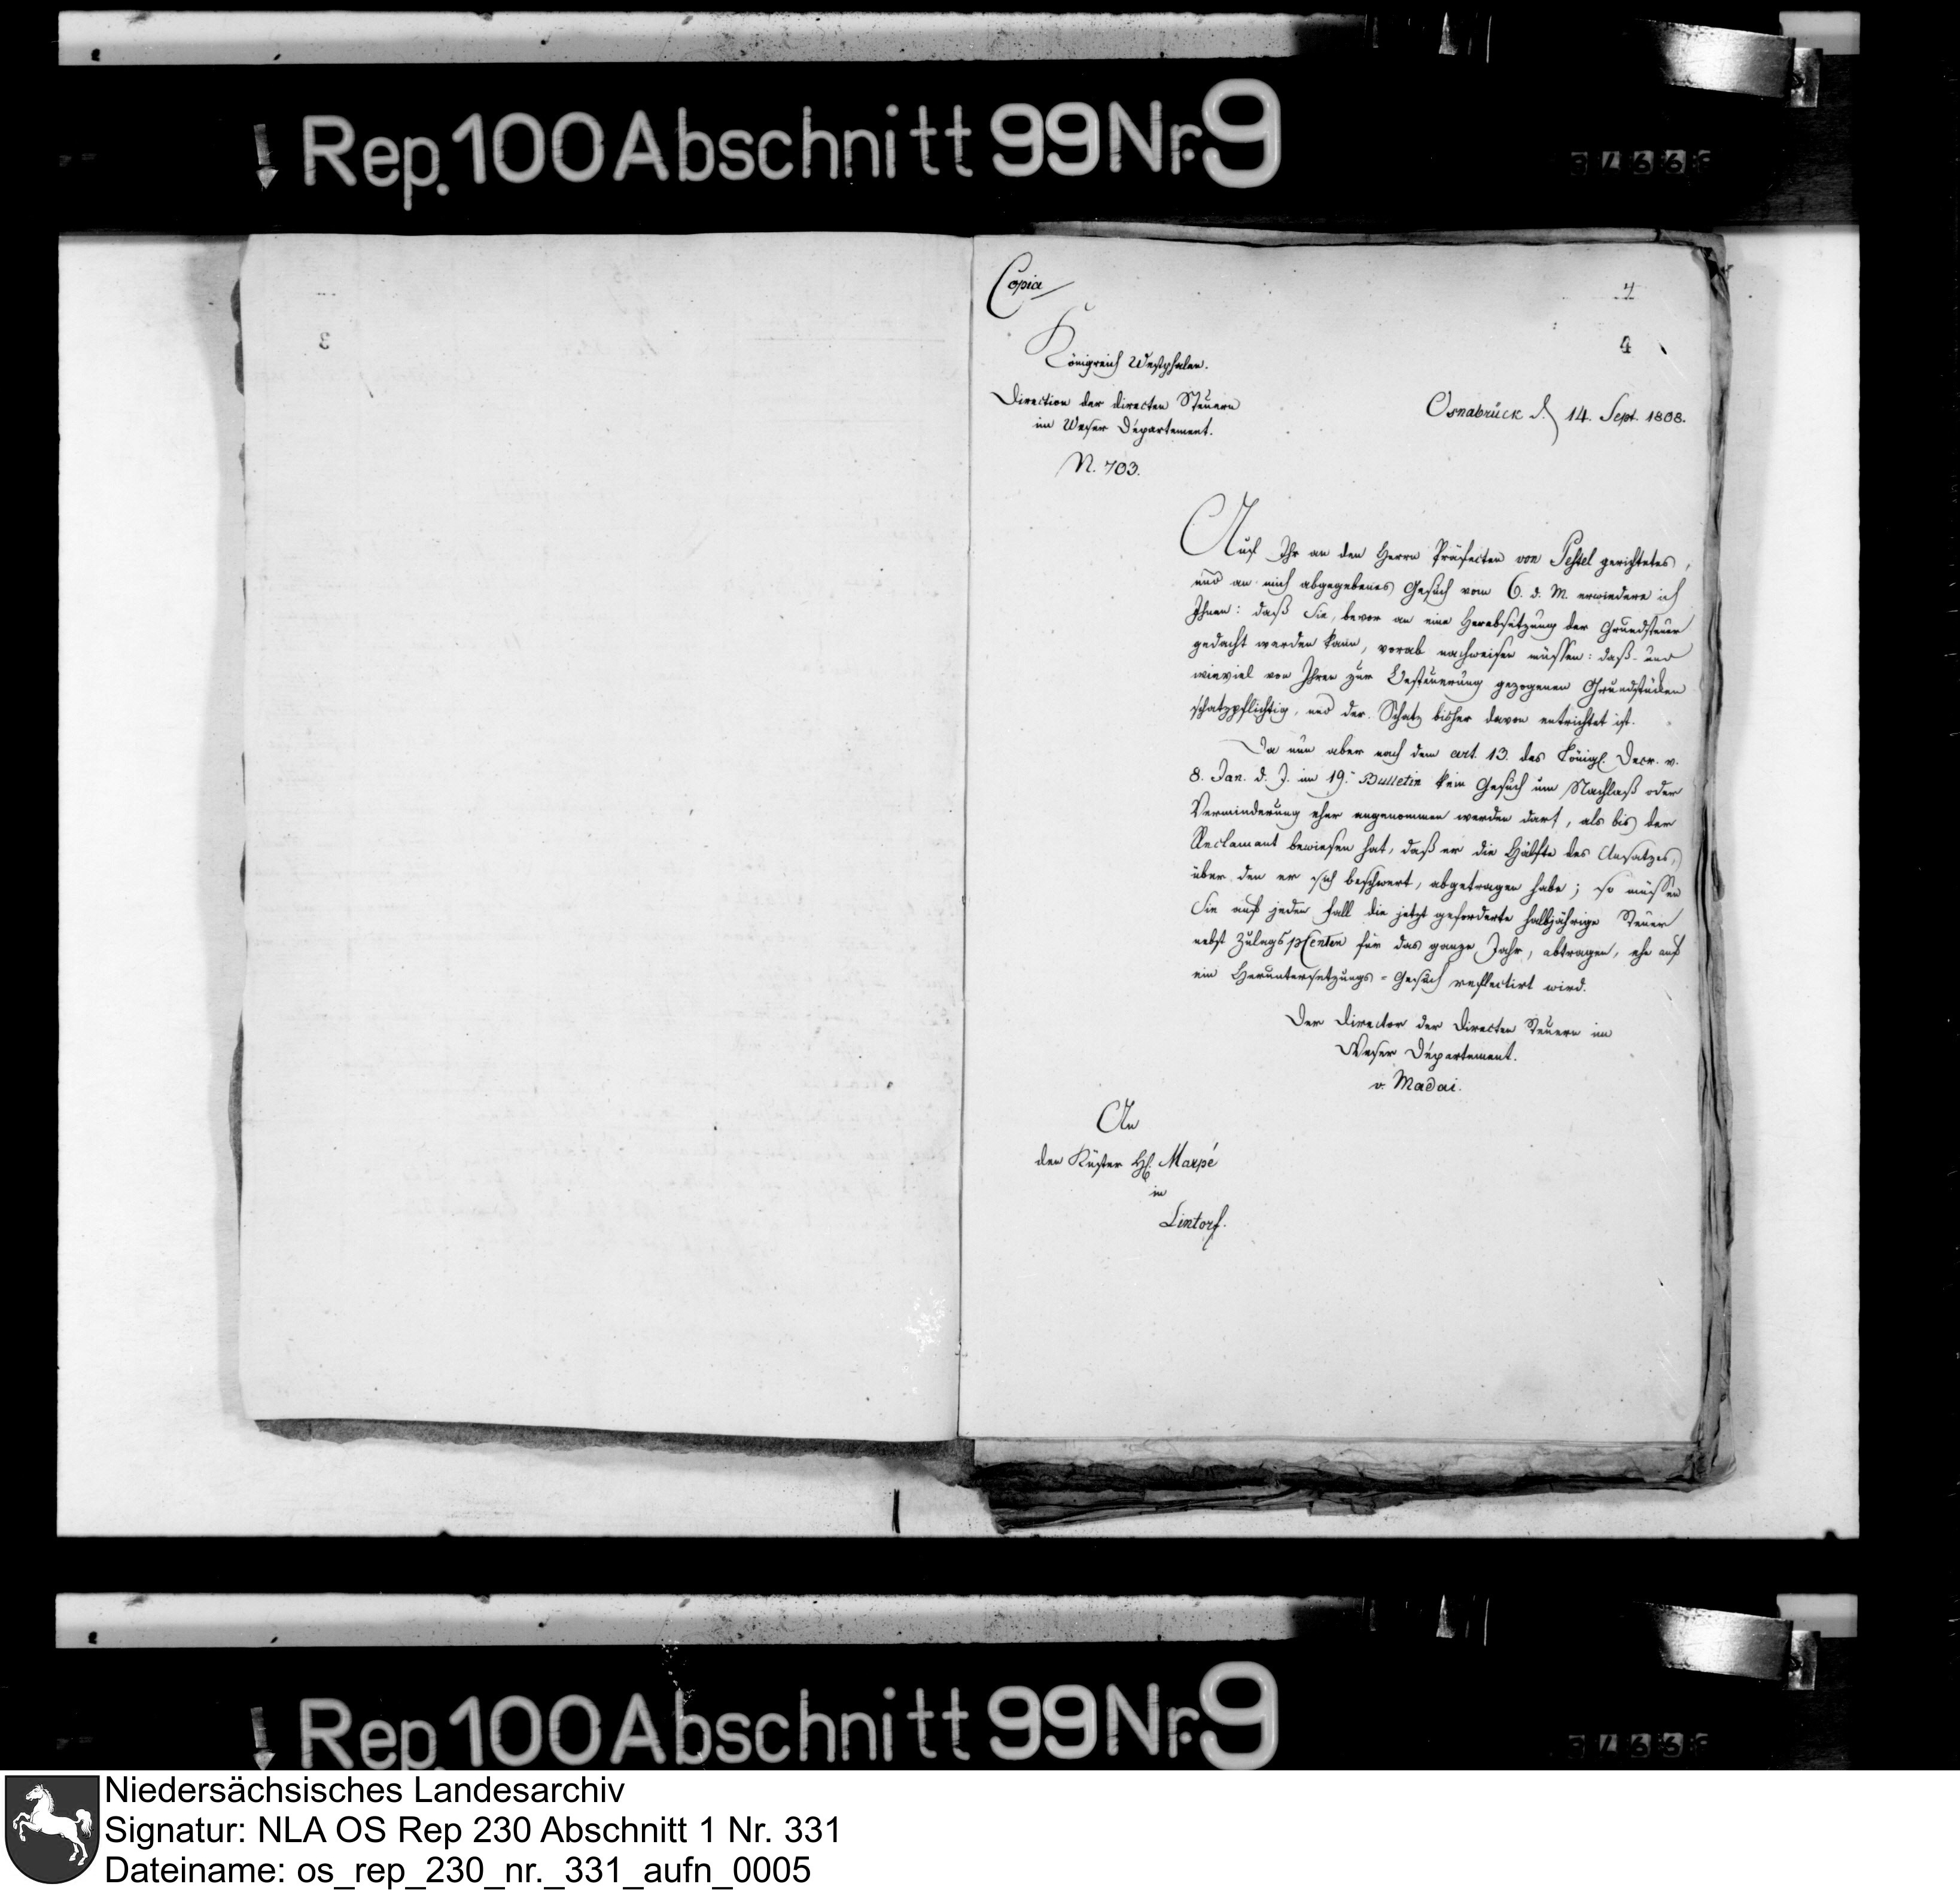 Rep. 100 Abschnitt 99 Nr. 9
3
Copia
4
4
Königreich Westphalen.
Direction der directen Steuern
im Weser Département.
N. 703.
Osnabrück d. 14. Sept. 1808.
Auf Ihr an den Herrn Präfecten von Pestel gerichtetes,
und an mich abgegebenes Gesuch vom 6. d. M. erwiedere ich
Ihnen: daß Sie, bevor an eine Herabsetzung der Grundsteuer
gedacht werden kann, vorab nachweisen müssen: daß und
wieviel von Ihren zur Besteuerung gezogenen Grundstücken
schatzpflichtig, und der Schatz bisher davon entrichtet ist.
Da nun aber nach dem art. 13. des Königl. Decr. v.
8. Jan. d. J. im 19. Bulletin kein Gesuch um Nachlaß oder
Verminderung eher angenommen werden darf, als bis der
Reclamant bewiesen hat, daß er die Hälfte des Ansatzes,
über den er sich beschwert, abgetragen habe; so müssen
Sie auf jeden Fall die jetzt geforderte halbjährige Steuer
nebst Zulags für das ganze Jahr, abtragen, ehe auf
ein Heruntersetzungs-Gesuch reflectirt wird.
Der Director der Directen Steuern im
Weser Département.
v. Madai.
An
den Küster H. Marpé
in
Lintorf.
Rep. 100 Abschnitt 99 Nr. 9
Niedersächsisches Landesarchiv
Signatur: NLA OS Rep 230 Abschnitt 1 Nr. 331
Dateiname: os_rep_230_nr._331_aufn_0005